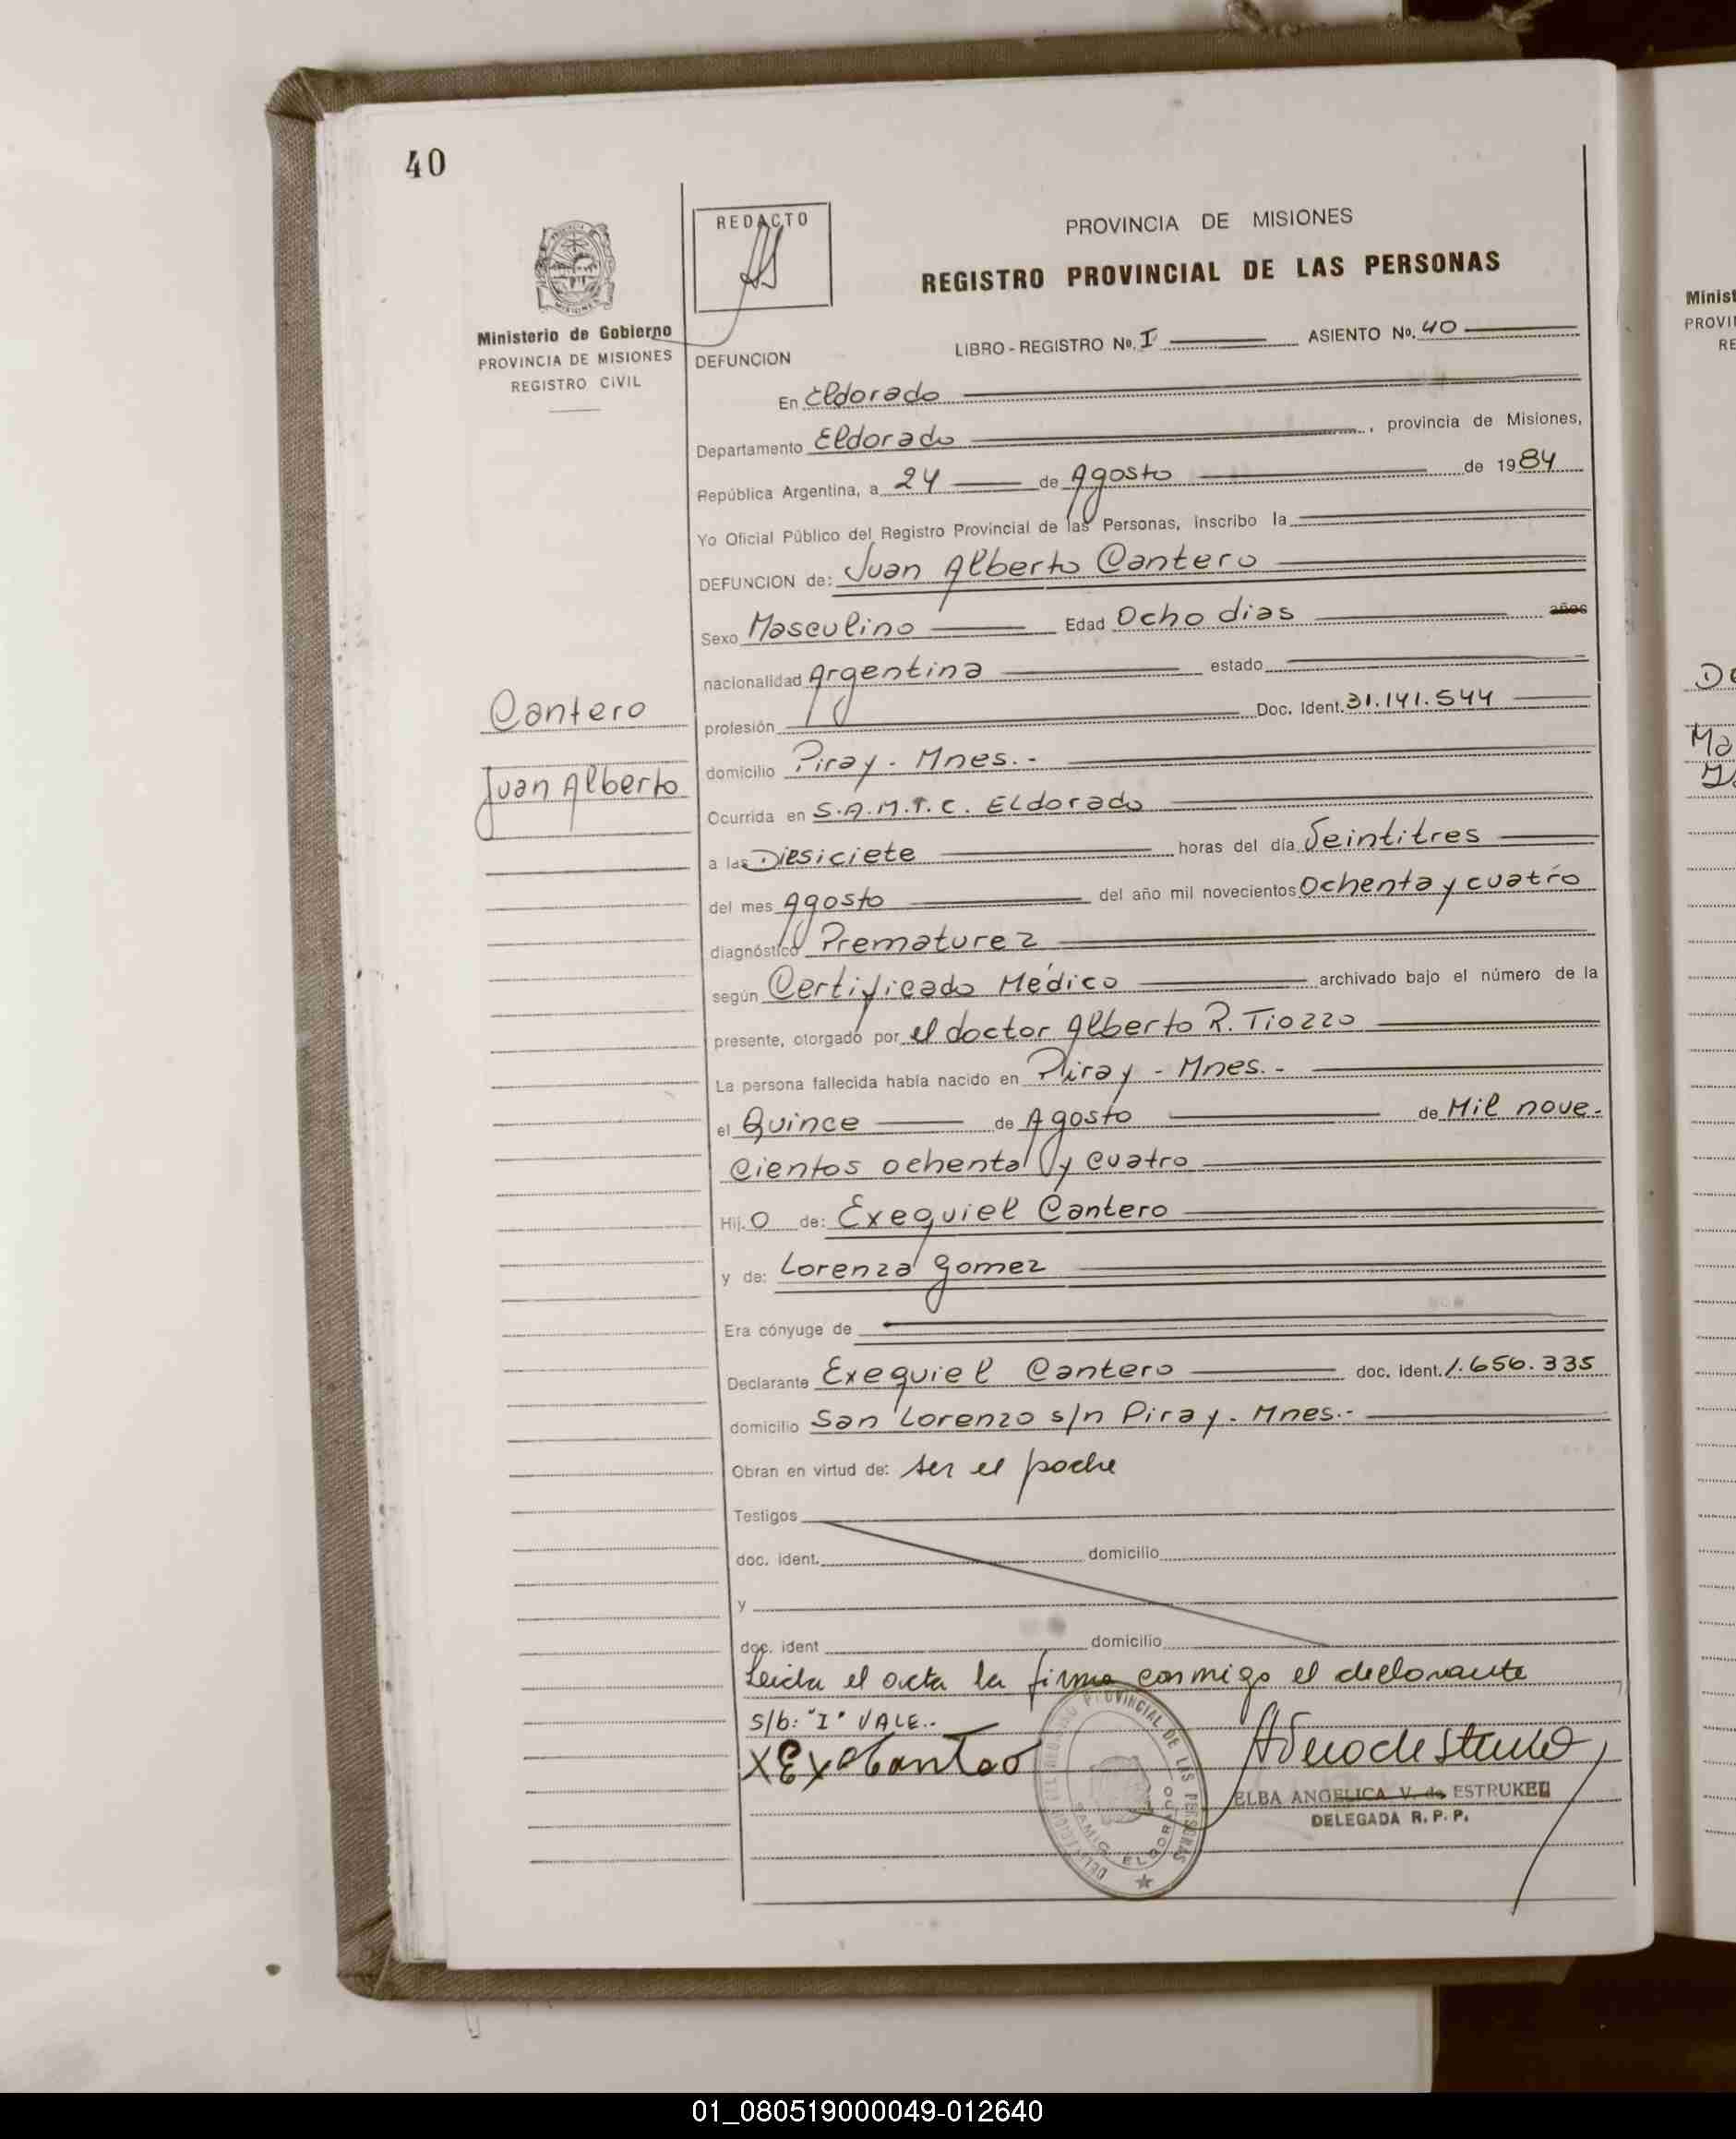 40
REDACTO
PROVINCIA DE MISIONES
REGISTRO PROVINCIAL DE LAS PERSONAS
Ministerio de Gobierno
PROVINCIA DE MISIONES
REGISTRO CIVIL
DEFUNCION
LIBRO - REGISTRO No. I ASIENTO No. 40
En Eldorado
Departamento Eldorado , provincia de Misiones,
República Argentina, a 24 de Agosto de 1984
Yo Oficial Público del Registro Provincial de las Personas, inscribo la
DEFUNCION de: Juan Alberto Cantero
Sexo Masculino Edad Ocho dias años
nacionalidad Argentina estado
Cantero
Juan Alberto
profesión Doc. Ident. 31.141.544
domicilio Piray - Mnes. -
Ocurrida en S.A.M.I.C. Eldorado
a las Diesiciete horas del día Veintitres
del mes Agosto del año mil novecientos Ochenta y cuatro
diagnóstico Prematurez
según Certificado Médico archivado bajo el número de la
presente, otorgado por el doctor Alberto R. Tiozzo
La persona fallecida había nacido en Piray - Mnes. -
el Quince de Agosto de Mil nove-
cientos ochenta y cuatro
Hij o de: Exequiel Cantero
y de: Lorenza Gomez
Era cónyuge de
Declarante Exequiel Cantero doc. ident. 1.656.335
domicilio San Lorenzo s/n Piray - Mnes. -
Obran en virtud de: ser el padre
Testigos
doc. ident. domicilio
y
doc. ident domicilio
Leida el acta la firma conmigo el declarante
s/b: "I" VALE.-
PROVINCIAL DE LAS PERSONAS
ELDORADO
ELBA ANGELICA V. de ESTRUKEL
DELEGADA R. P. P.
Minist
PROVI
RE
De
Ma
01_080519000049-012640